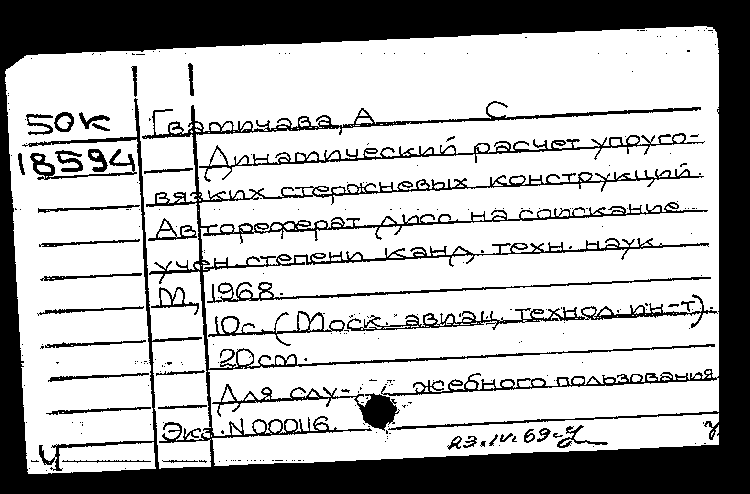 50к Гватичава, А С
18594 Динамический расчет упруго-
вязких стержневых конструкций.
Автореферат дисс. на соискание
учен. степени канд. техн. наук.
М., 1968.
10с. (Моск. авиац. технол. ин-т).
20см.
Для слу- жебного пользования
Экз. N 000116.
23.IV.69
Ч